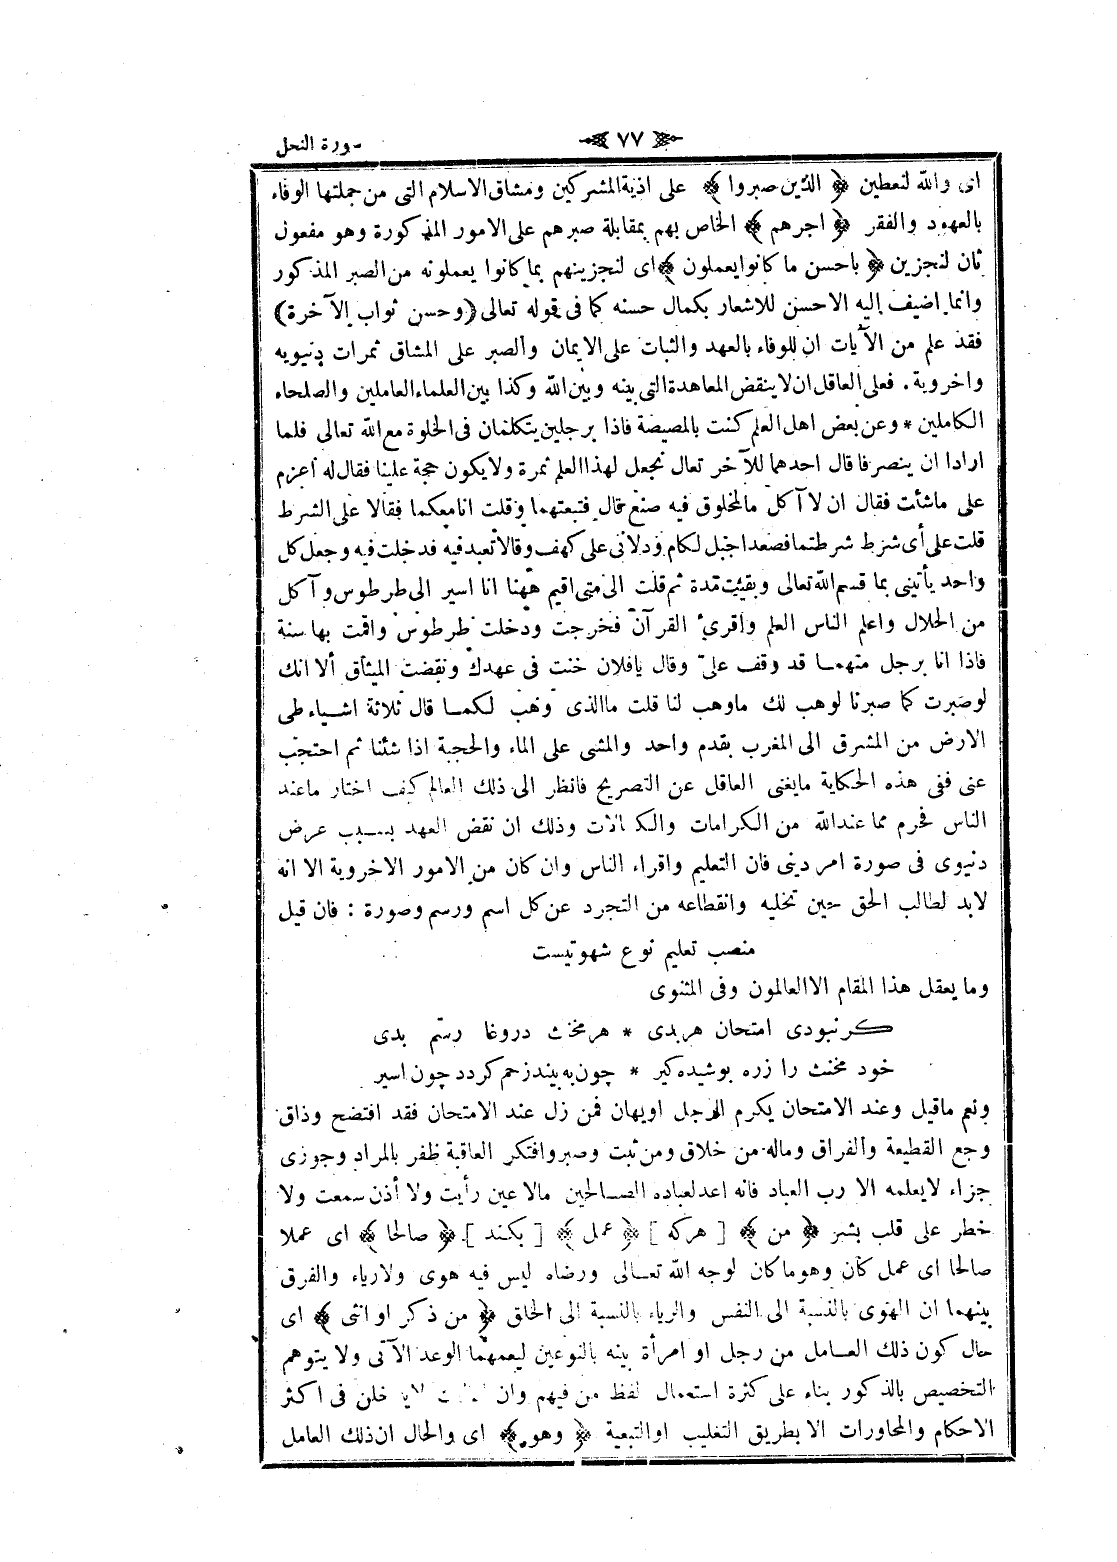 سورة النحل ﴿ ٧٧ ﴾
اى والله لنعطين ﴿ الذين صبروا ﴾ على اذية المشركين ومشاق الاسلام التى من جملتها الوفاء
بالعهود والفقر ﴿ اجرهم ﴾ الخاص بهم بمقابلة صبرهم على الامور المذكورة وهو مفعول
ثان لنجزين ﴿ باحسن ما كانوا يعملون ﴾ اى لنجزينهم بما كانوا يعملونه من الصبر المذكور
وانما اضيف اليه الاحسن للاشعار بكمال حسنه كما فى قوله تعالى (وحسن ثواب الآخرة)
فقد علم من الآيات ان للوفاء بالعهد والثبات على الايمان والصبر على المشاق ثمرات دنيويه
واخروية . فعلى العاقل ان لا ينقض المعاهدة التى بينه وبين الله وكذا بين العلماء العاملين والصلحاء
الكاملين * وعن بعض اهل العلم كنت بالمصيصة فاذا برجلين يتكلمان فى الخلوة مع الله تعالى فلما
ارادا ان ينصرفا قال احدهما للآخر تعال نجعل لهذا العلم ثمرة ولا يكون حجة علينا فقال له أعزم
على ماشئت فقال ان لا آكل مالمخلوق فيه صنع قال فتبعتهما وقلت انا معكما فقالا على الشرط
قلت على أى شرط شرطتما فصعدا جبل لكام ودلانى على كهف وقالا تعبد فيه فدخلت فيه وجعل كل
واحد يأتينى بما قسم الله تعالى وبقيت مدة ثم قلت الى متى اقيم ههنا انا اسير الى طرطوس وآكل
من الحلال واعلم الناس العلم واقرئ القرآن فخرجت ودخلت طرطوس واقمت بها سنة
فاذا انا برجل منهما قد وقف علىّ وقال يافلان خنت فى عهدك ونقضت الميثاق ألا انك
لو صبرت كما صبرنا لوهب لك ماوهب لنا قلت ماالذى وهب لكما قال ثلاثة اشياء طى
الارض من المشرق الى المغرب بقدم واحد والمشى على الماء والحجبة اذا شئنا ثم احتجب
عنى ففى هذه الحكاية مايغنى العاقل عن التصريح فانظر الى ذلك العالم كيف اختار ماعند
الناس فحرم مما عندالله من الكرامات والكمالات وذلك ان نقض العهد بسبب عرض
دنيوى فى صورة امر دينى فان التعليم واقراء الناس وان كان من الامور الاخروية الا انه
لابد لطالب الحق حين تخليه وانقطاعه من التجرد عن كل اسم ورسم وصورة : فان قيل
منصب تعليم نوع شهوتيست
وما يعقل هذا المقام الا العالمون وفى المثنوى
كرنبودى امتحان هربدى * هر مخنث دروغا رستم بدى
خود مخنث را زره پوشيده كير * چون به بيند زخم كردد چون اسير
ونعم ماقيل وعند الامتحان يكرم الرجل اويهان فمن زل عند الامتحان فقد افتضح وذاق
وجع القطيعة والفراق وماله من خلاق ومن ثبت وصبر وافتكر العاقبة ظفر بالمراد وجوزى
جزاء لايعلمه الا رب العباد فانه اعد لعباده الصالحين مالا عين رأيت ولا أذن سمعت ولا
خطر على قلب بشر ﴿ من ﴾ [ هركه ] ﴿ عمل ﴾ [ بكند ] ﴿ صالحا ﴾ اى عملا
صالحا اى عمل كان وهو ماكان لوجه الله تعالى ورضاه ليس فيه هوى ولا رياء والفرق
بينهما ان الهوى بالنسبة الى النفس والرياء بالنسبة الى الخلق ﴿ من ذكر او انثى ﴾ اى
حال كون ذلك العامل من رجل او امرأة بينه بالنوعين ليعمهما الوعد الآتى ولا يتوهم
التخصيص بالذكور بناء على كثرة استعمال لفظ من فيهم وان خلن فى اكثر
الاحكام والمحاورات الا بطريق التغليب او التبعية ﴿ وهو ﴾ اى والحال ان ذلك العامل